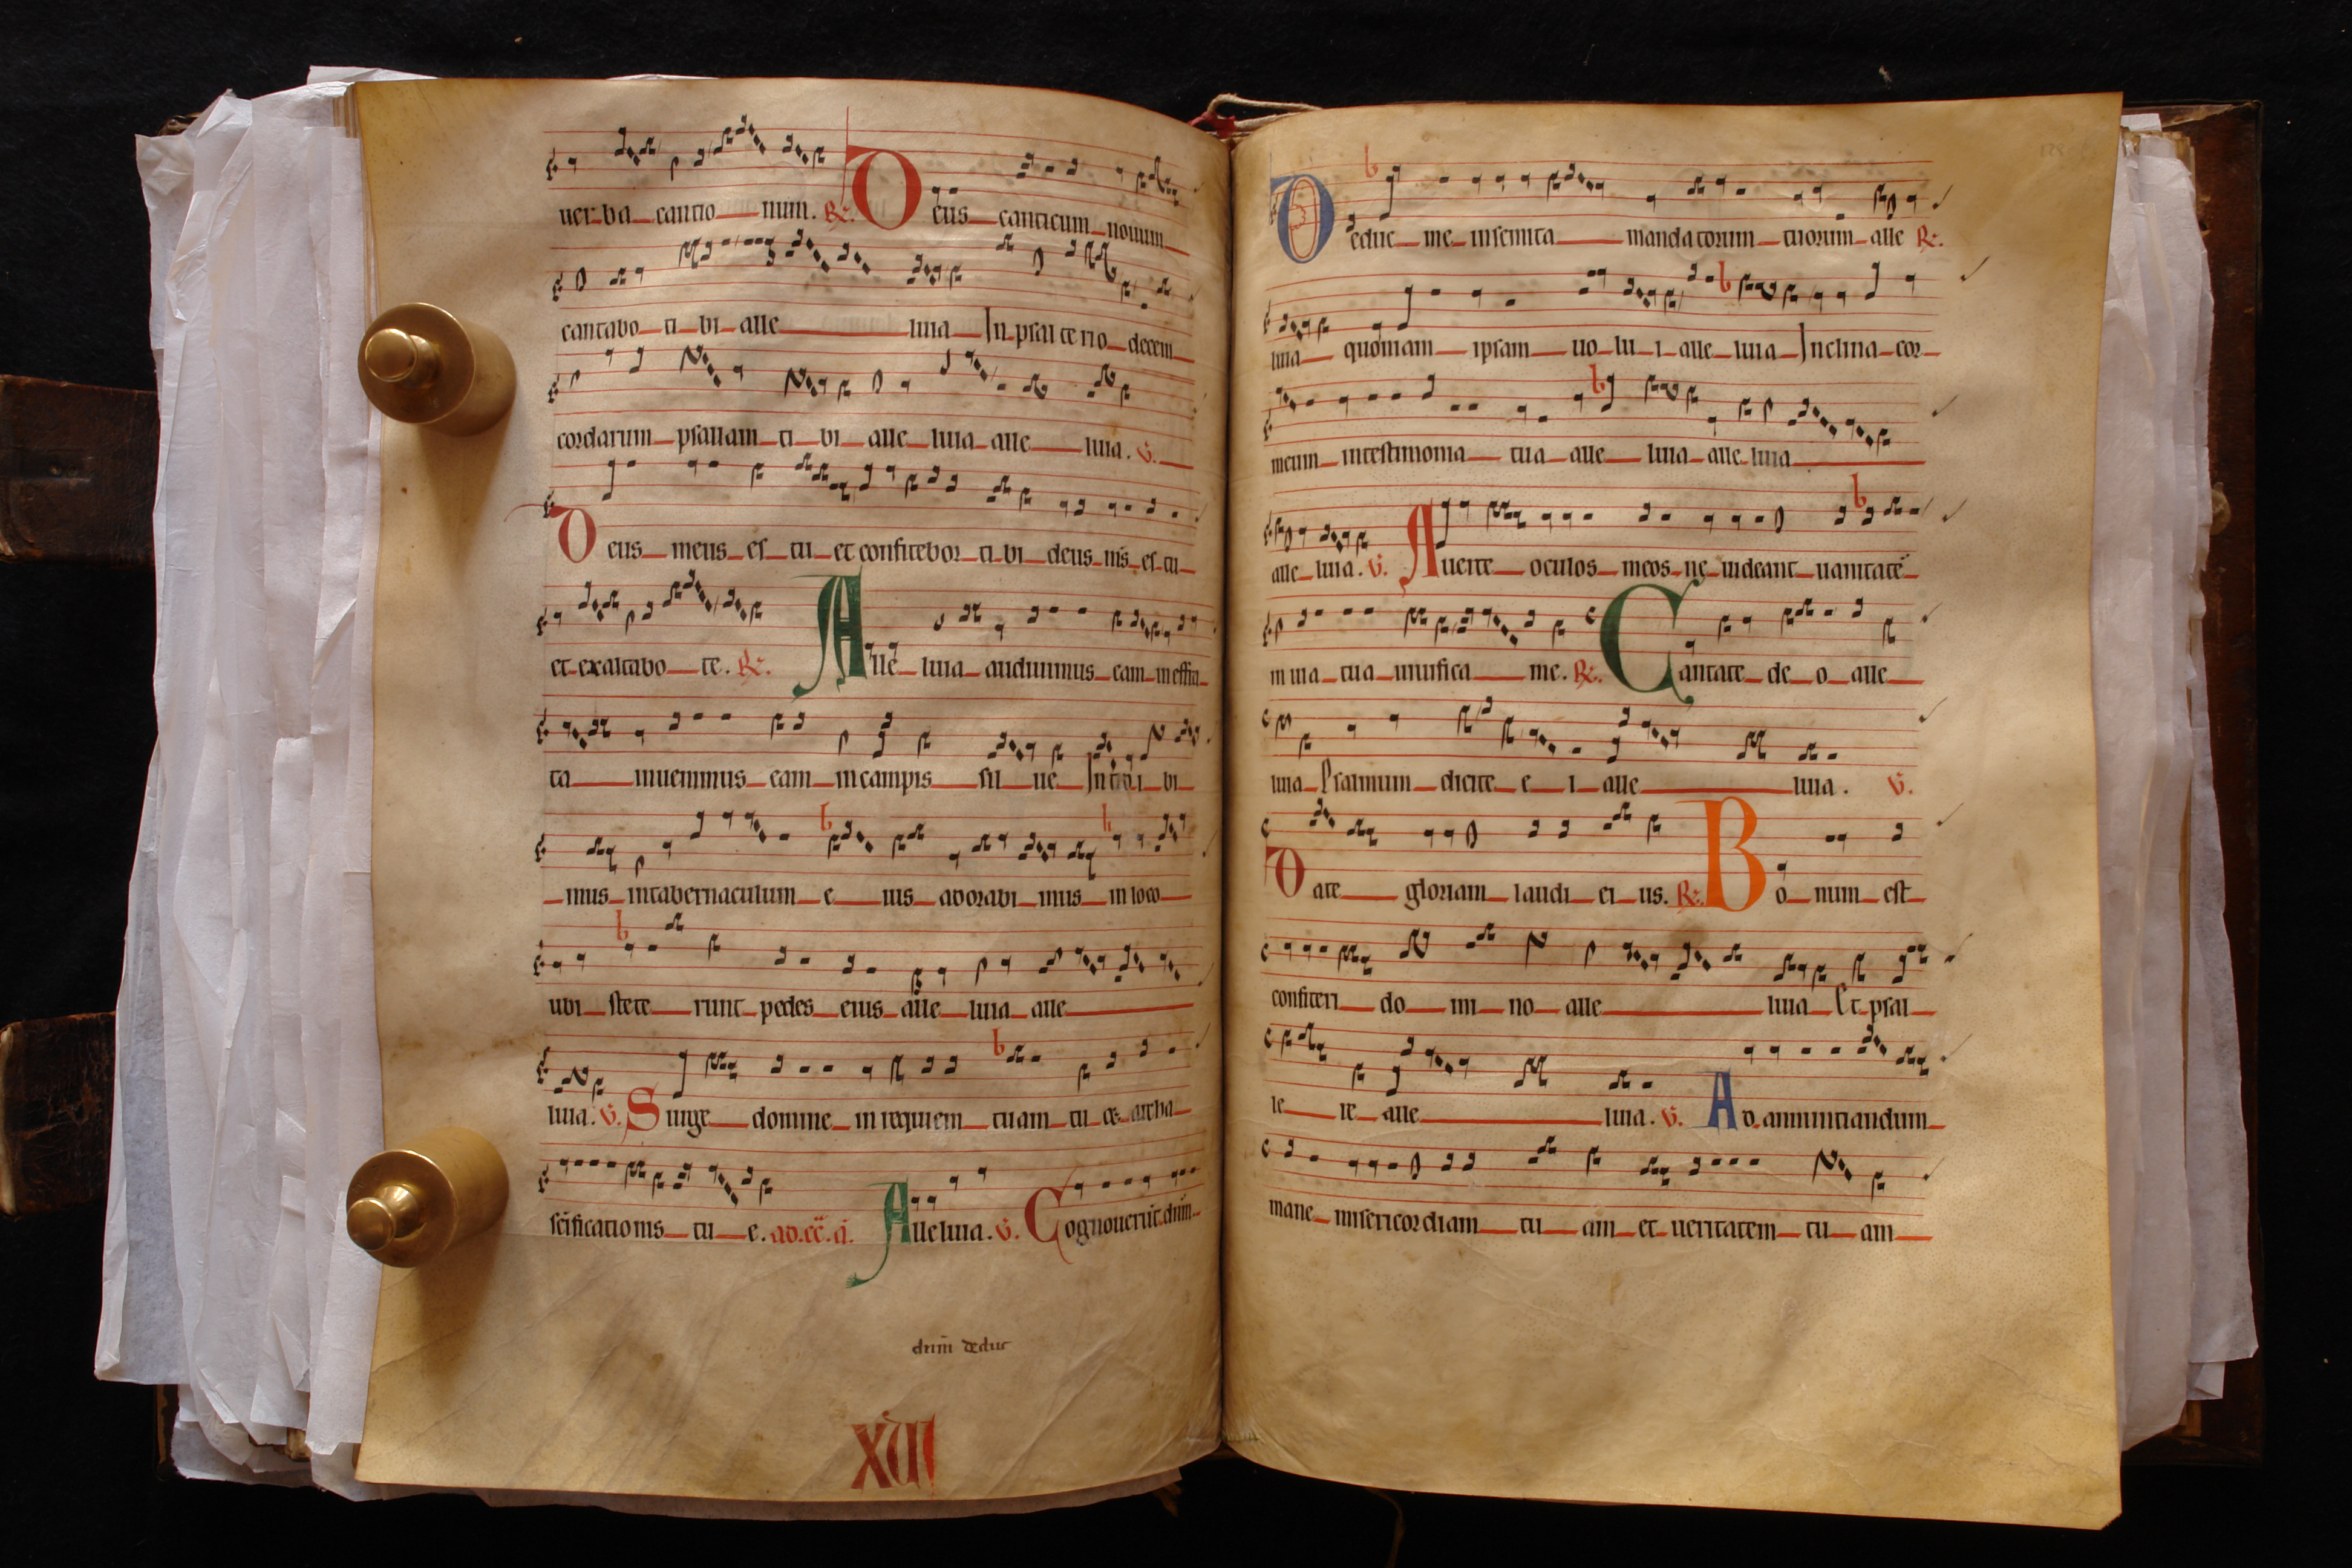 uer ba cantio num. R. Deus canticum nouum
cantabo ti bi alle luia In psal te rio decem
cordarum psallam ti bi alle luia alle luia. V.
Deus meus es tu et confitebor ti bi deus m̄s es tu
et exaltabo te. R. Alle luia audiuimus eam in effra
ta inuenimus eam in campis sil ue Introi bi
mus in tabernaculum e ius adorabi mus in loco
ubi stete runt pedes eius alle luia alle
luia. V. Surge domine in requiem tuam tu et archa
scificationis tu e. Alleluia. V. Cognouerūt dn̄m
dn̄m deduc
XIII
Deduc me in semita mandatorum tuorum alle R.
luia quoniam ipsam uo lu i alle luia Inclina cor
meum in testimonia tua alle luia alle luia
alle luia. V. Auerte oculos meos ne uideant uanitatē
in uia tua uiuifica me. R. Cantate de o alle
luia Psalmum dicite e i alle luia. V.
Date gloriam laudi ei us. R. Bo num est
confiteri do mi no alle luia Et psal
le re alle luia. V. Ad annuntiandum
mane misericordiam tu am et ueritatem tu am